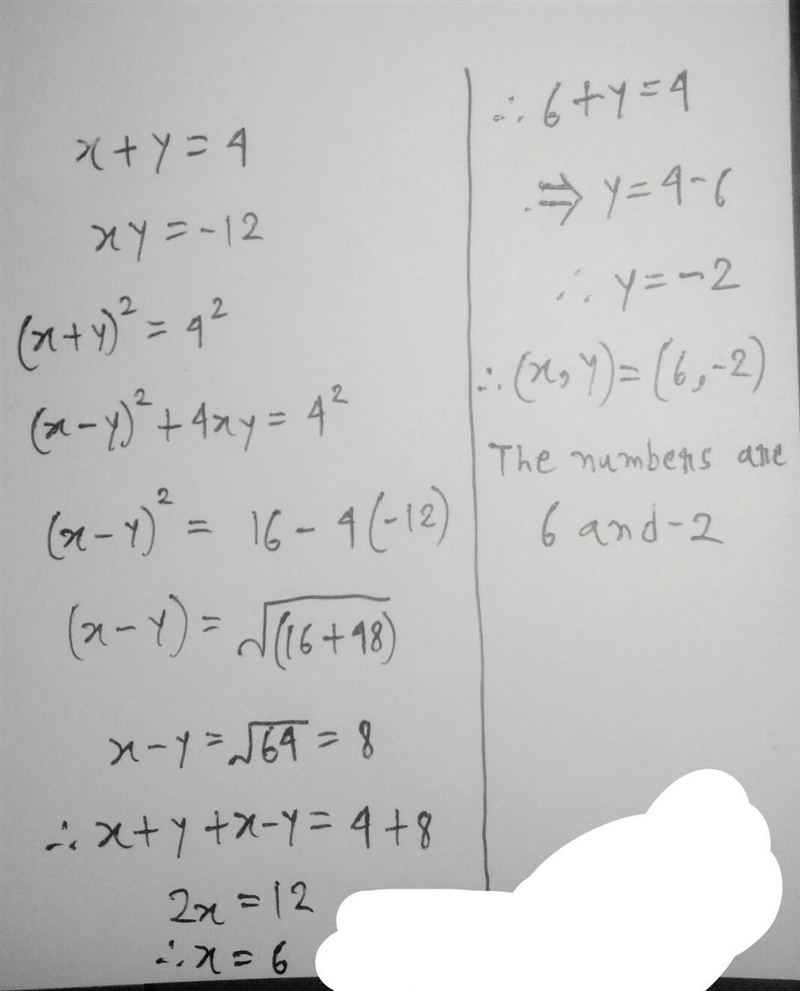 x + y = 4
xy = -12
(x+y)² = 4²
(x-y)² + 4xy = 4²
(x-y)² = 16 - 4(-12)
(x-y) = √(16+48)
x-y = √64 = 8
∴ x+y+x-y = 4+8
2x = 12
∴ x = 6
∴ 6+y = 4
⇒ y = 4-6
∴ y = -2
∴ (x, y) = (6, -2)
The numbers are
6 and -2